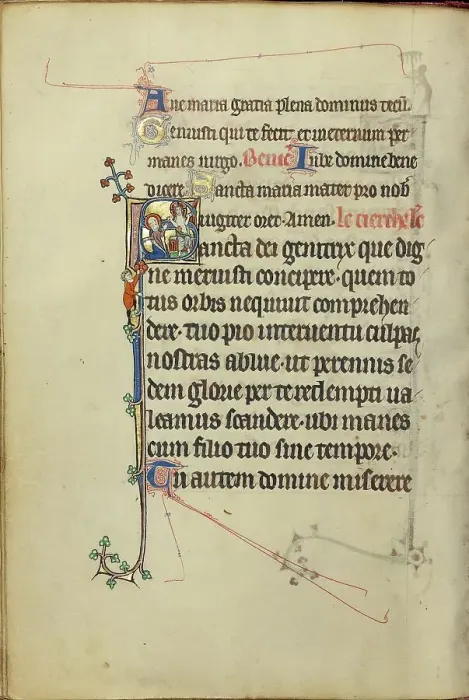 Ave maria gratia plena dominus tecū.
Genuisti qui te fecit et in eternum per
manes virgo. Benic̄ Iube domine bene
dicere Sancta maria mater pro nob
iugiter oret. Amen.
Sancta dei genitrix que dig
ne meruisti concipere. quem to
tus orbis nequiuit comprehen
dere. tuo pio interuentu culpas
nostras ablue. ut perennis se
dem glorie per te redempti ua
leamus scandere. ubi manes
cum filio tuo sine tempore.
Tu autem domine miserere